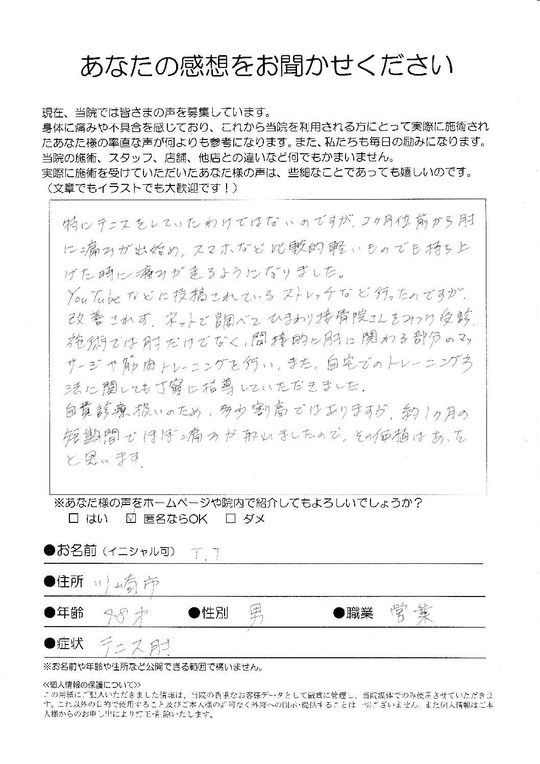 あなたの感想をお聞かせください
現在、当院では皆さまの声を募集しています。
身体に痛みや不具合を感じており、これから当院を利用される方にとって実際に施術され
たあなた様の率直な声が何よりも参考になります。また、私たちも毎日の励みになります。
当院の施術、スタッフ、店舗、他店との違いなど何でもかまいません。
実際に施術を受けていただいたあなた様の声は、些細なことであっても嬉しいのです。
(文章でもイラストでも大歓迎です!)
特にテニスをしていたわけではないのですが、2ヶ月位前から肘
に痛みが出始め、スマホなど比較的軽いものでも持ち上
げた時に痛みが走るようになりました。
YouTubeなどに投稿されているストレッチなど行ったのですが、
改善されず、ネットで調べてひまわり接骨院さんをみつけ受診。
施術では肘だけでなく、間接的に肘に関わる部分のマッ
サージや筋肉トレーニングを行い、また、自宅でのトレーニング方
法に関しても丁寧に指導していただきました。
自費診療扱いのため、多少割高ではありますが、約1ヶ月の
短期間でほぼ痛みが取れましたので、その価値はあった
と思います。
※あなた様の声をホームページや院内で紹介してもよろしいでしょうか?
□ はい ☑ 匿名ならOK □ ダメ
●お名前(イニシャル可) T.T
●住所 川崎市
●年齢 48才 ●性別 男 ●職業 営業
●症状 テニス肘
※お名前や年齢や住所など公開できる範囲で構いません。
≪個人情報の保護について≫
この用紙にご記入いただきました情報は、当院の貴重なお客様データとして厳重に管理し、当院媒体でのみ使用させていただきま
す。これ以外の目的で使用すること及びご本人様の許可なく外部への開示・提供することは一切ございません。また個人情報はご本
人様からのお申し出により訂正・削除いたします。